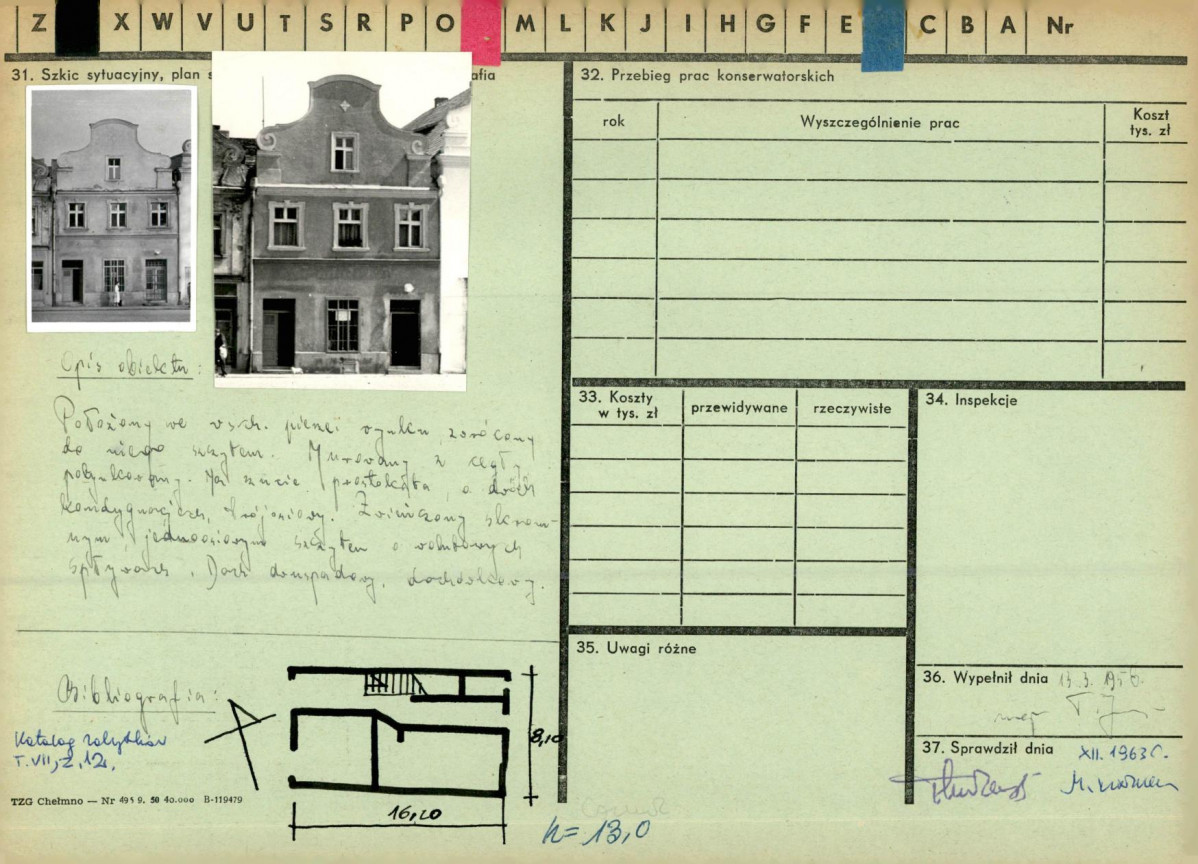 Z X W V U T S R P O M L K J I H G F E C B A Nr
31. Szkic sytuacyjny, plan s afia
Opis obiektu:
Położony we wsch. pierzei rynku, zwrócony
do niego szczytem. Murowany z cegły,
potynkowany. Na rzucie prostokąta, o dwóch
kondygnacjach, trójosiowy. Zwieńczony skrom-
nym jednoosiowym szczytem o wolutowych
spływach. Dach dwuspadowy, dachówkowy.
Bibliografia:
Katalog zabytków
T. VII, z. 12,
8,10
16,20
h = 13,0
TZG Chełmno — Nr 495 9. 50 40.000 B-119479
32. Przebieg prac konserwatorskich
rok
Wyszczególnienie prac
Koszt
tys. zł
33. Koszty
w tys. zł
przewidywane
rzeczywiste
34. Inspekcje
35. Uwagi różne
36. Wypełnił dnia 13.3.
mgr
37. Sprawdził dnia XII. 1963 r.